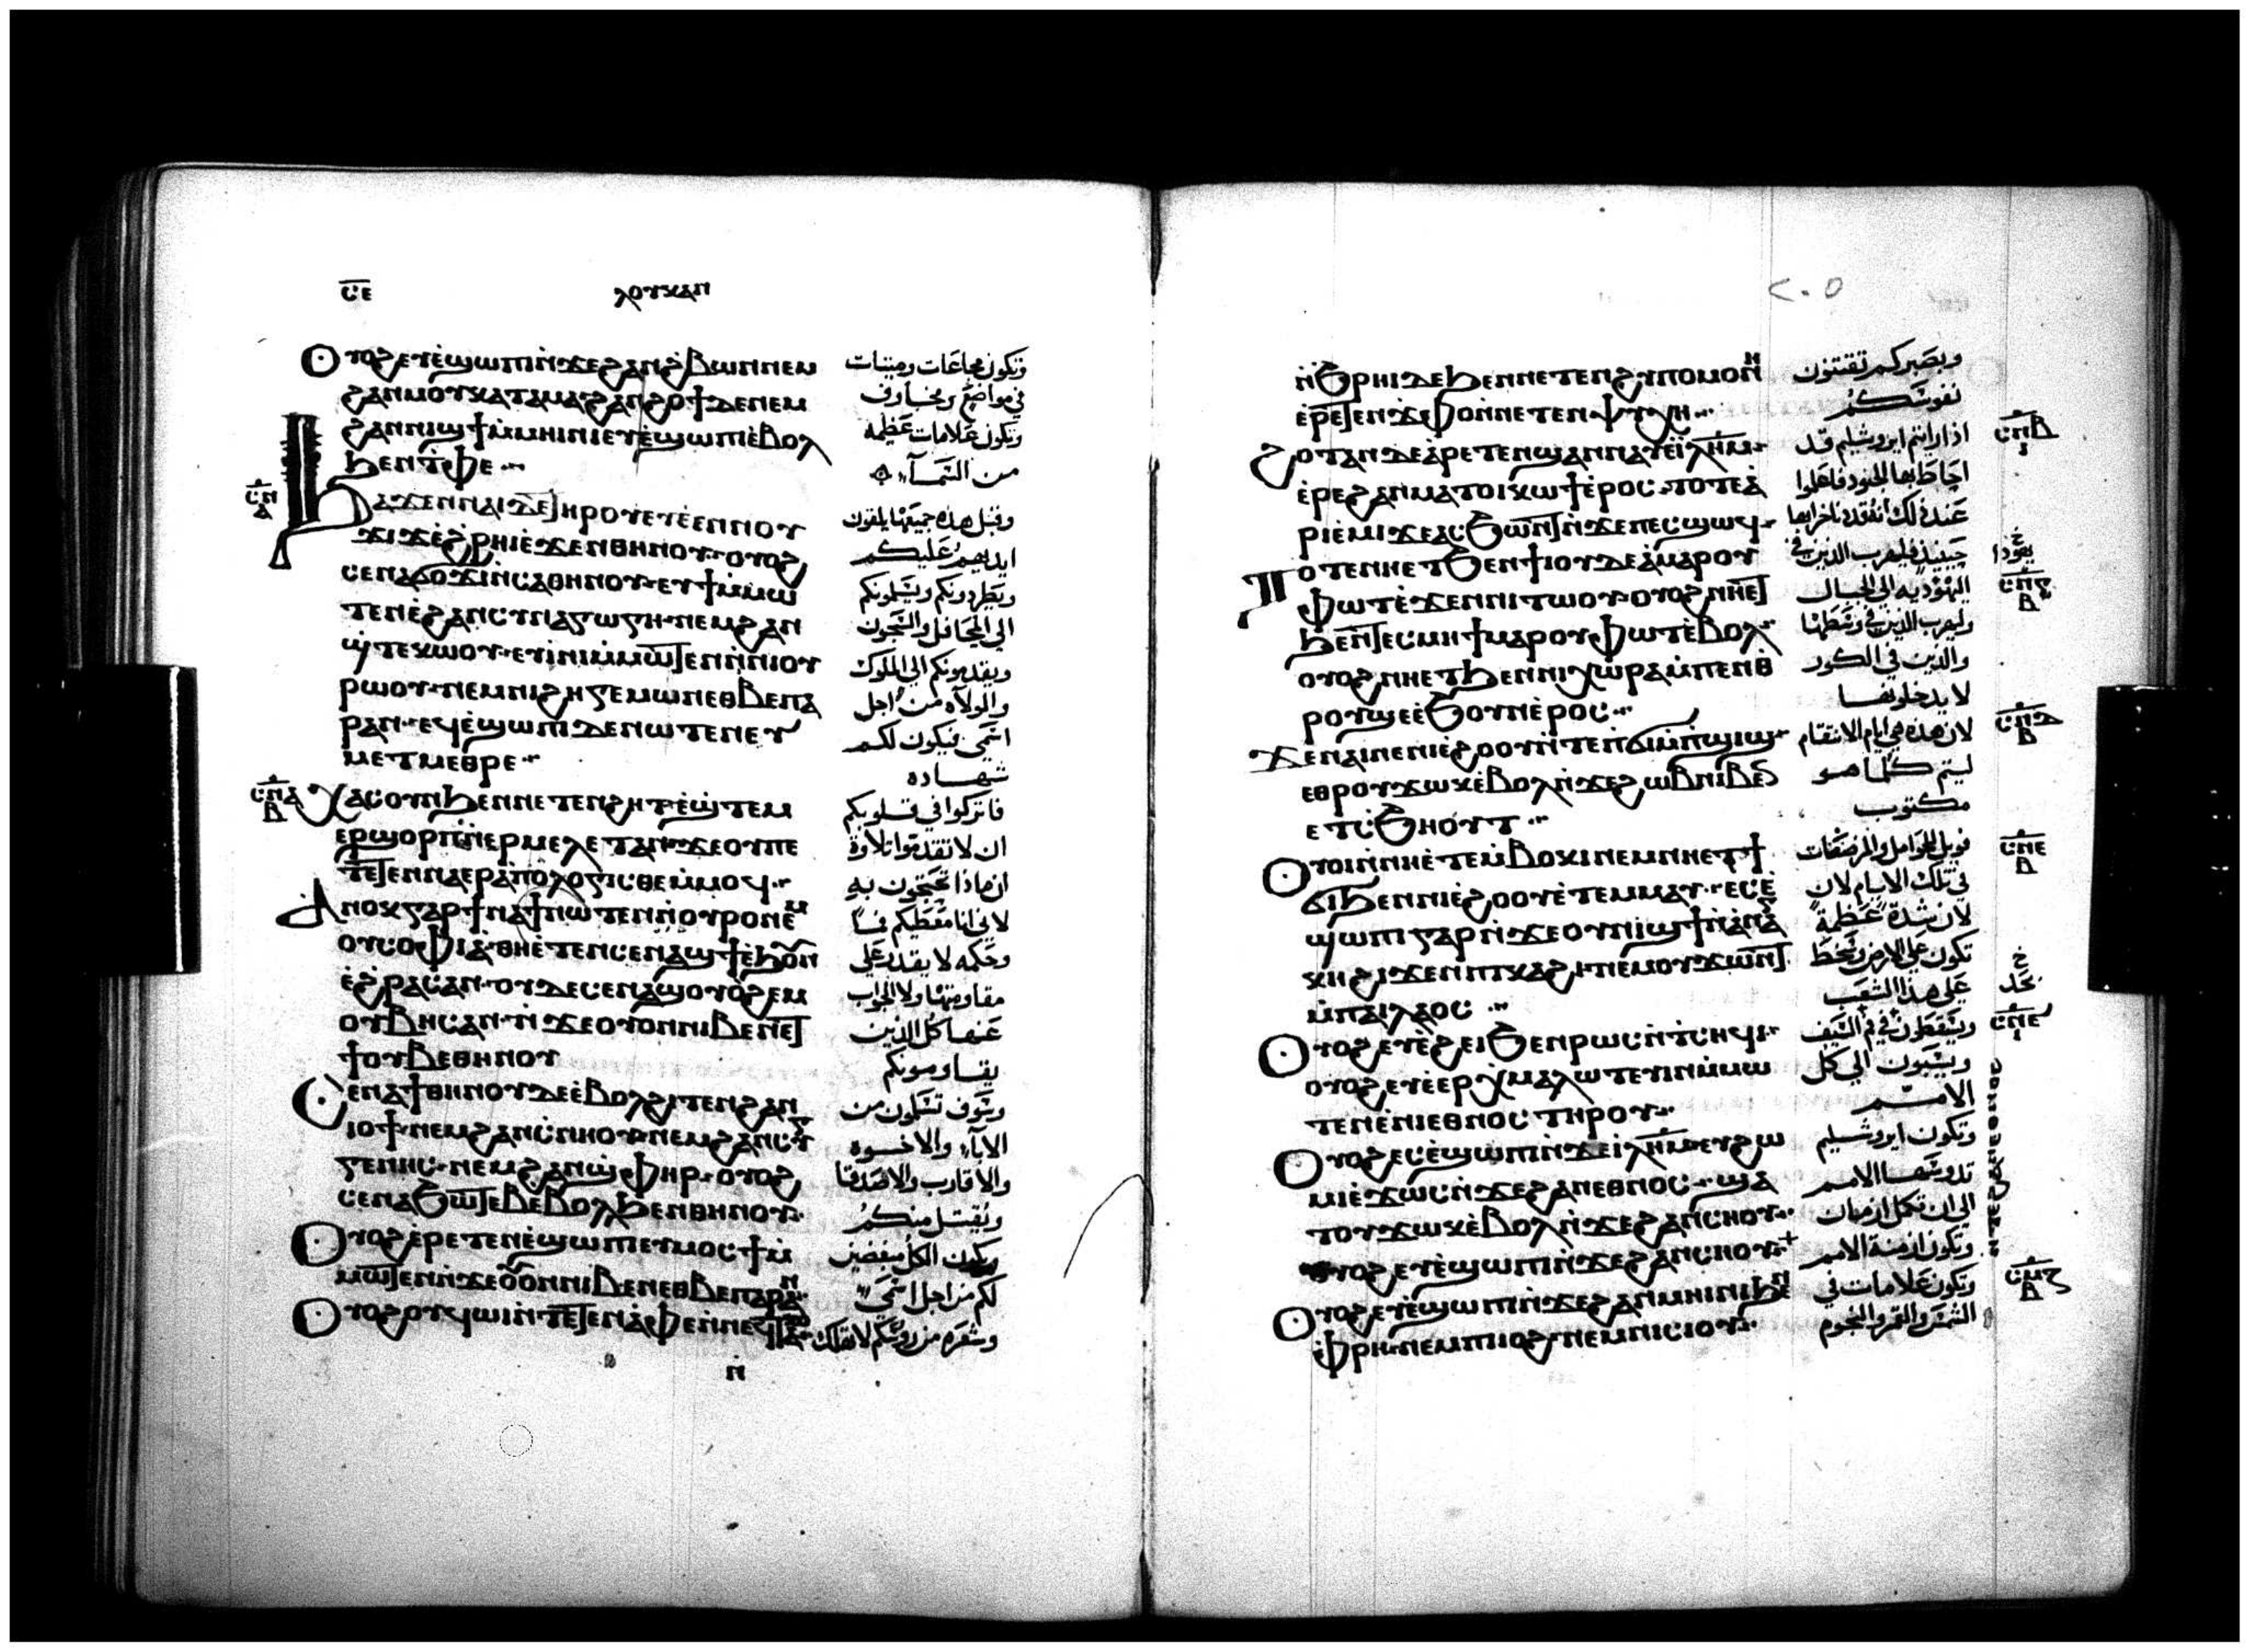 ⲥⲉ
ⲗⲟⲩⲕⲁⲛ
ⲟⲩⲟϩ ⲉⲩⲉ̀ϣⲱⲡⲓ ⲛ̀ϫⲉ ϩⲁⲛϩ̀ⲃⲱⲛ ⲛⲉⲙ
ϩⲁⲛⲙⲟⲩ ⲕⲁⲧⲁ ⲙⲁ ϩⲁⲛϩⲟϯ ⲇⲉ ⲛⲉⲙ
ϩⲁⲛⲛⲓϣϯ ⲙ̀ⲙⲏⲓⲛⲓ ⲉⲩⲉ̀ϣⲱⲡⲓ ⲉ̀ⲃⲟⲗ
ϧⲉⲛ ⲧ̀ⲫⲉ
ϧⲁϫⲉⲛ ⲛⲁⲓ ⲇⲉ ⲧⲏⲣⲟⲩ ⲉⲩⲉ̀ⲉⲛ ⲛⲟⲩ
ϫⲓϫ ⲉ̀ϩ̀ⲣⲏⲓ ⲉ̀ϫⲉⲛ ⲑⲏⲛⲟⲩ ⲟⲩⲟϩ
ⲥⲉⲛⲁϭⲟϫⲓ ⲛ̀ⲥⲁ ⲑⲏⲛⲟⲩ ⲉⲩϯ ⲙ̀ⲙⲱ
ⲧⲉⲛ ⲉ̀ϩⲁⲛⲥⲩⲛⲁⲅⲱⲅⲏ ⲛⲉⲙ ϩⲁⲛ
ϣ̀ⲧⲉⲕⲱⲟⲩ ⲉⲩⲓ̀ⲛⲓ ⲙ̀ⲙⲱⲧⲉⲛ ⲛ̀ⲛⲓⲟⲩ
ⲣⲱⲟⲩ ⲛⲉⲙ ⲛⲓϩⲏⲅⲉⲙⲱⲛ ⲉⲑⲃⲉ ⲡⲁ
ⲣⲁⲛ ⲉϥⲉ̀ϣⲱⲡⲓ ⲇⲉ ⲛⲱⲧⲉⲛ ⲉⲩ
ⲙⲉⲧⲙⲉⲑⲣⲉ
ⲭⲁⲥ ⲟⲩⲛ ϧⲉⲛ ⲛⲉⲧⲉⲛϩⲏⲧ ⲉ̀ϣ̀ⲧⲉⲙ
ⲉⲣϣⲟⲣⲡ ⲛ̀ⲉⲣⲙⲉⲗⲉⲧⲁⲛ ϫⲉ ⲟⲩ ⲡⲉ
ⲧⲉⲧⲉⲛⲛⲁⲉⲣⲁ̀ⲡⲟⲗⲟⲅⲓⲥⲑⲉ ⲙ̀ⲙⲟϥ
ⲁⲛⲟⲕ ⲅⲁⲣ ϯⲛⲁϯ ⲛⲱⲧⲉⲛ ⲛ̀ⲟⲩⲣⲟ ⲛⲉⲙ
ⲟⲩⲥⲟⲫⲓⲁ̀ ⲑⲏ ⲉ̀ⲧⲉⲛⲥⲉⲛⲁϣϯ ⲉ̀ϧⲟⲩⲛ
ⲉ̀ϩ̀ⲣⲁⲥ ⲁⲛ ⲟⲩⲇⲉ ⲥⲉⲛⲁϣⲟⲩⲟ̀ϩⲉⲙ
ⲟⲩⲃⲏⲥ ⲁⲛ ⲛ̀ϫⲉ ⲟⲩⲟⲛ ⲛⲓⲃⲉⲛ ⲉⲧ
ϯ ⲟⲩⲃⲉ ⲑⲏⲛⲟⲩ
ⲥⲉⲛⲁϯ ⲑⲏⲛⲟⲩ ⲇⲉ ⲉ̀ⲃⲟⲗ ϩⲓⲧⲉⲛ ϩⲁⲛ
ⲓⲟϯ ⲛⲉⲙ ϩⲁⲛⲥ̀ⲛⲏⲟⲩ ⲛⲉⲙ ϩⲁⲛⲥⲩⲅ
ⲅⲉⲛⲏⲥ ⲛⲉⲙ ϩⲁⲛϣ̀ⲫⲏⲣ ⲟⲩⲟϩ
ⲥⲉⲛⲁϧⲱⲧⲉⲃ ⲉⲃⲟⲗ ϧⲉⲛ ⲑⲏⲛⲟⲩ
ⲟⲩⲟϩ ⲉ̀ⲣⲉⲧⲉⲛⲉ̀ϣⲱⲡⲓ ⲉⲩⲙⲟⲥϯ ⲙ̀
ⲙⲱⲧⲉⲛ ⲛ̀ϫⲉ ⲟⲩⲟⲛ ⲛⲓⲃⲉⲛ ⲉⲑⲃⲉ ⲡⲁⲣⲁⲛ
ⲟⲩⲟϩ ⲟⲩϥⲱⲓ ⲛ̀ⲧⲉ ⲧⲉⲛⲁ̀ⲫⲉ ⲛ̀ⲛⲉϥⲧⲁⲕⲟ
وتكون مجاعات وميتات
في مواضع ومخاوف
وتكون علامات عظيمه
من السمآء
وقبل هذه جميعها يلقون
ايديهم عليكم
ويطردونكم ويسلمونكم
الي المحافل والسجون
ويقدمونكم الي الملوك
والولاه من اجل
اسمي فيكون لكم
شهاده
فاتركوا في قلوبكم
ان لا تقدموا تلاوة
ان ماذا تحتجون به
لاني انا معطيكم فمًا
وحكمه لا يقدر علي
مقاومتها ولا الجواب
عنها كل الذين
يقاومونكم
وسوف تسلمون من
الابآء والاخوه
والاقارب والاصدقا
ويقتل منكم
ويكون الكل مبغضين
لكم من اجل اسمي
وشعره من روسكم لا تهلك
ⲥⲡ
ⲁ
ⲥⲡⲁ
ⲃ
ⲛ̀
٢٠٥
ⲛ̀ϧ̀ⲣⲏⲓ ⲇⲉ ϧⲉⲛ ⲛⲉⲧⲉⲛϩⲩⲡⲟⲙⲟⲛⲏ
ⲉ̀ⲣⲉⲧⲉⲛⲉ̀ϫⲫⲟ ⲛ̀ⲛⲉⲧⲉⲛⲯⲩⲭⲏ
ϩⲟⲧⲁⲛ ⲇⲉ ⲁ̀ⲣⲉⲧⲉⲛϣⲁⲛⲛⲁⲩ ⲉ̀ⲓⲗⲏⲙ
ⲉ̀ⲣⲉ ϩⲁⲛⲙⲁⲧⲟⲓ ⲕⲱϯ ⲉ̀ⲣⲟⲥ ⲧⲟⲧⲉ ⲁ̀
ⲣⲓⲉ̀ⲙⲓ ϫⲉ ⲁⲥϧⲱⲛⲧ ⲛ̀ϫⲉ ⲡⲉⲥϣⲱϥ
ⲧⲟⲧⲉ ⲛⲏ ⲉⲧϧⲉⲛ ϯⲓⲟⲩⲇⲉⲁ̀ ⲙⲁⲣⲟⲩ
ⲫⲱⲧ ⲉ̀ϫⲉⲛ ⲛⲓⲧⲱⲟⲩ ⲟⲩⲟϩ ⲛⲏ ⲉⲧ
ϧⲉⲛ ⲧⲉⲥⲙⲏϯ ⲙⲁⲣⲟⲩⲫⲱⲧ ⲉ̀ⲃⲟⲗ
ⲟⲩⲟϩ ⲛⲏ ⲉⲧϧⲉⲛ ⲛⲓⲭⲱⲣⲁ ⲙ̀ⲡⲉⲛⲑ
ⲣⲟⲩϣⲉ ⲉ̀ϧⲟⲩⲛ ⲉ̀ⲣⲟⲥ
ϫⲉ ⲛⲁⲓ ⲛⲉ ⲛⲓⲉϩⲟⲟⲩ ⲛ̀ⲧⲉ ⲡ̀ϭⲓ ⲙ̀ⲡϣⲓϣ
ⲉⲑⲣⲟⲩϫⲱⲕ ⲉ̀ⲃⲟⲗ ⲛ̀ϫⲉ ϩⲱⲃ ⲛⲓⲃⲉⲛ
ⲉⲧⲥ̀ϧⲏⲟⲩⲧ
ⲟⲩⲟⲓ ⲛ̀ⲛⲏ ⲉ̀ⲧⲉⲙ̀ⲃⲟⲕⲓ ⲛⲉⲙ ⲛⲏ ⲉⲧϯ
ϭⲓ ϧⲉⲛ ⲛⲓⲉϩⲟⲟⲩ ⲉ̀ⲧⲉⲙⲙⲁⲩ ⲉⲥⲉ̀
ϣⲱⲡⲓ ⲅⲁⲣ ⲛ̀ϫⲉ ⲟⲩⲛⲓϣϯ ⲛ̀ⲁ̀ⲛⲁⲅ
ⲕⲏ ϩⲓϫⲉⲛ ⲡⲓⲕⲁϩⲓ ⲛⲉⲙ ⲟⲩϫⲱⲛⲧ
ⲙ̀ⲡⲁⲓⲗⲁⲟⲥ
ⲟⲩⲟϩ ⲉⲩⲉ̀ϩⲉⲓ ϧⲉⲛ ⲣⲱⲥ ⲛ̀ⲧⲥⲏϥⲓ
ⲟⲩⲟϩ ⲉⲩⲉ̀ⲉⲣⲉⲭⲙⲁⲗⲱⲧⲉⲩⲓⲛ ⲙ̀ⲙⲱ
ⲧⲉⲛ ⲉ̀ⲛⲓⲉⲑⲛⲟⲥ ⲧⲏⲣⲟⲩ
ⲟⲩⲟϩ ⲉⲥⲉ̀ϣⲱⲡⲓ ⲛ̀ϫⲉ ⲓ̀ⲗⲏⲙ ⲉⲩϩⲱ
ⲙⲓ ⲉ̀ϫⲱⲥ ⲛ̀ϫⲉ ϩⲁⲛⲉⲑⲛⲟⲥ ϣⲁ
ⲧⲟⲩϫⲱⲕ ⲉ̀ⲃⲟⲗ ⲛ̀ϫⲉ ϩⲁⲛⲥⲏⲟⲩ
ⲟⲩⲟϩ ⲉⲩⲉ̀ϣⲱⲡⲓ ⲛ̀ϫⲉ ϩⲁⲛⲥⲏⲟⲩ
ⲟⲩⲟϩ ⲉⲩⲉ̀ϣⲱⲡⲓ ⲛ̀ϫⲉ ϩⲁⲛⲙⲏⲓⲛⲓ ϧⲉⲛ
ⲫ̀ⲣⲏ ⲛⲉⲙ ⲡⲓⲓⲟϩ ⲛⲉⲙ ⲛⲓⲥⲓⲟⲩ
وبصبركم تقتنون
نفوسكم
اذا رايتم ايروشليم قد
احاط بها الجنود فاعلموا
عند ذلك ان قد دنا خرابها
حينيذ فليهرب الذين في
اليهوديه الي الجبال
وليهرب الذين في وسطها
والذين في الكور
لا يدخلونها
لان هذه هي ايام الانتقام
ليتم كلما هو
مكتوب
فويل للحوامل والمرضعات
في تلك الايام لان
لان شدة عظيمة
تكون علي الارض وسخط
علي هذا الشعب
ويسقطون في فم السيف
ويسبون الي كل
الامم
وتكون ايروشليم
تدوسها الامم
الي ان تكمل ازمان
وتكون ازمنة الامم
وتكون علامات في
الشمس والقمر والنجوم
ⲥⲡⲃ
ⲥⲡⲅ
ⲃ
ⲥⲡⲇ
ⲃ
ⲥⲡⲉ
ⲃ